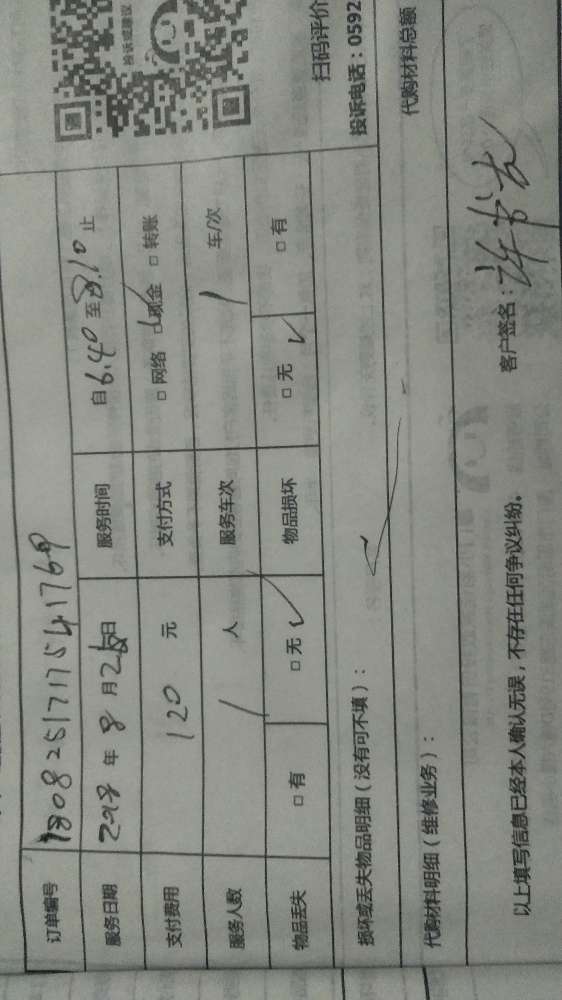 投诉或建议
扫码评价
投诉电话：0592
订单编号 180825171754 1769
服务日期 2018 年 8 月 26 日 服务时间 自 6:40 至 8:10 止
支付费用 120 元 支付方式 □ 网络 □ 现金 □ 转账
服务人数 1 人 服务车次 1 车/次
物品丢失 □ 有 □ 无 ✓ 物品损坏 □ 无 ✓ □ 有
损坏或丢失物品明细（没有可不填）：
代购材料明细（维修业务）： 代购材料总额
以上填写信息已经本人确认无误，不存在任何争议纠纷。 客户签名：